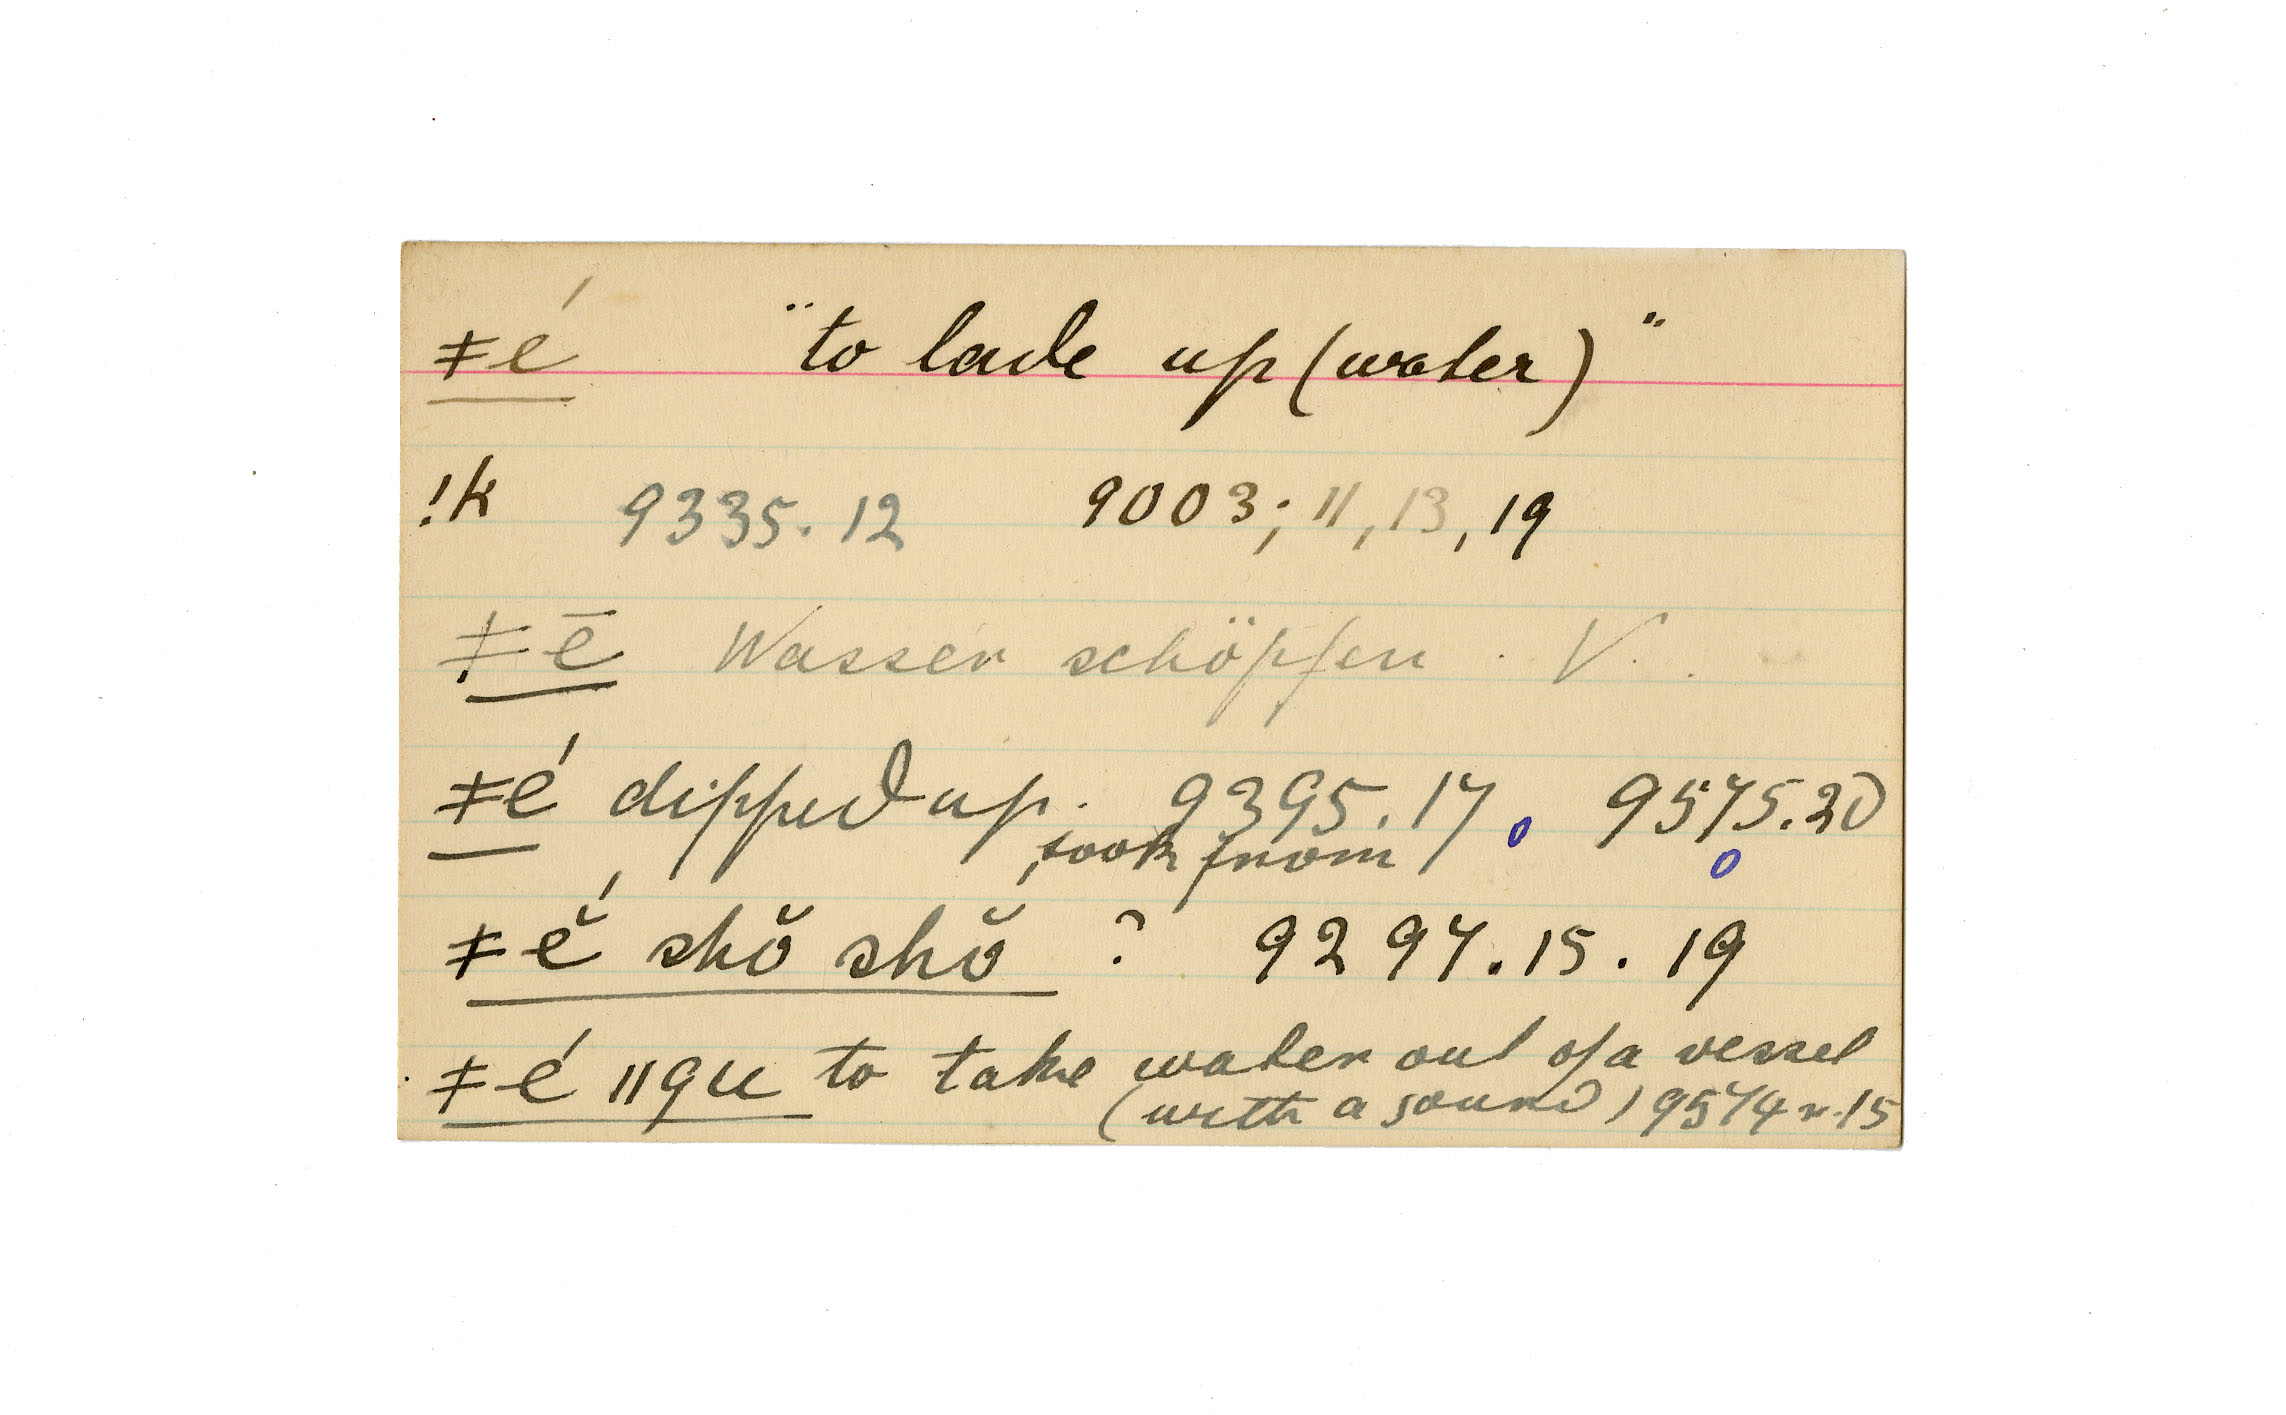 ǂé "to lade up (water)"
!k 9335.12 9003; 11, 13, 19
ǂē Wasser schöpfen. V.
ǂé dipped up. 9395.17. 9575.20
, took from
ǂĕ́ shŏ shŏ ? 9297.15.19
ǂé ǁgu to take water out of a vessel
(with a sound) 9574 r. 15